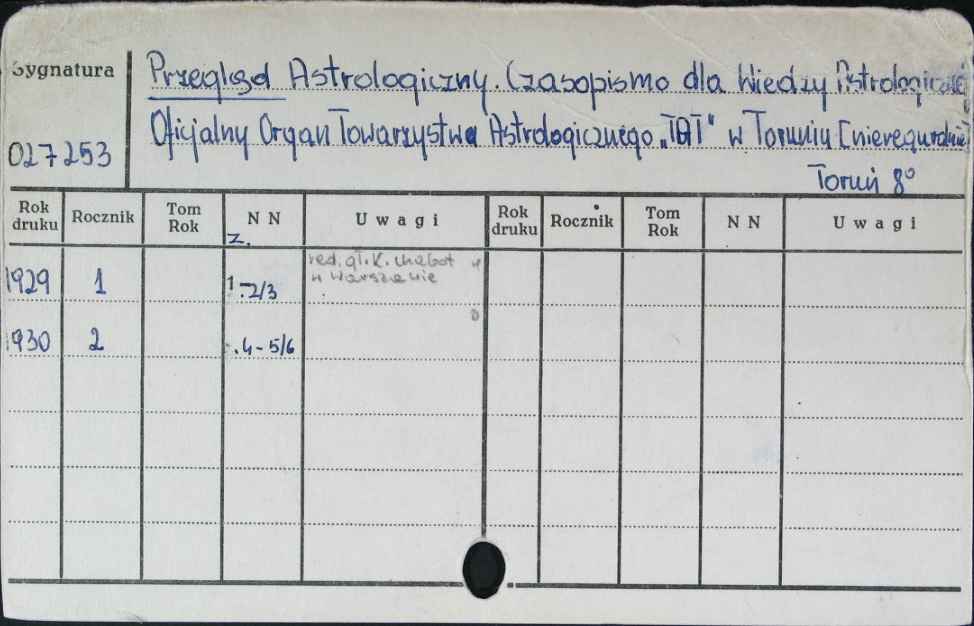 Sygnatura
027253
Przegląd Astrologiczny. Czasopismo dla Wiedzy Astrologicznej
Oficjalny Organ Towarzystwa Astrologicznego „TAT" w Toruniu [nieregularnie]
Toruń 8°
Rok druku Rocznik Tom Rok N N Uwagi Rok druku Rocznik Tom Rok N N Uwagi
z.
red. gł. K. Chobot
w Warszawie
1929 1 1.-2/3
1930 2 .4-5/6